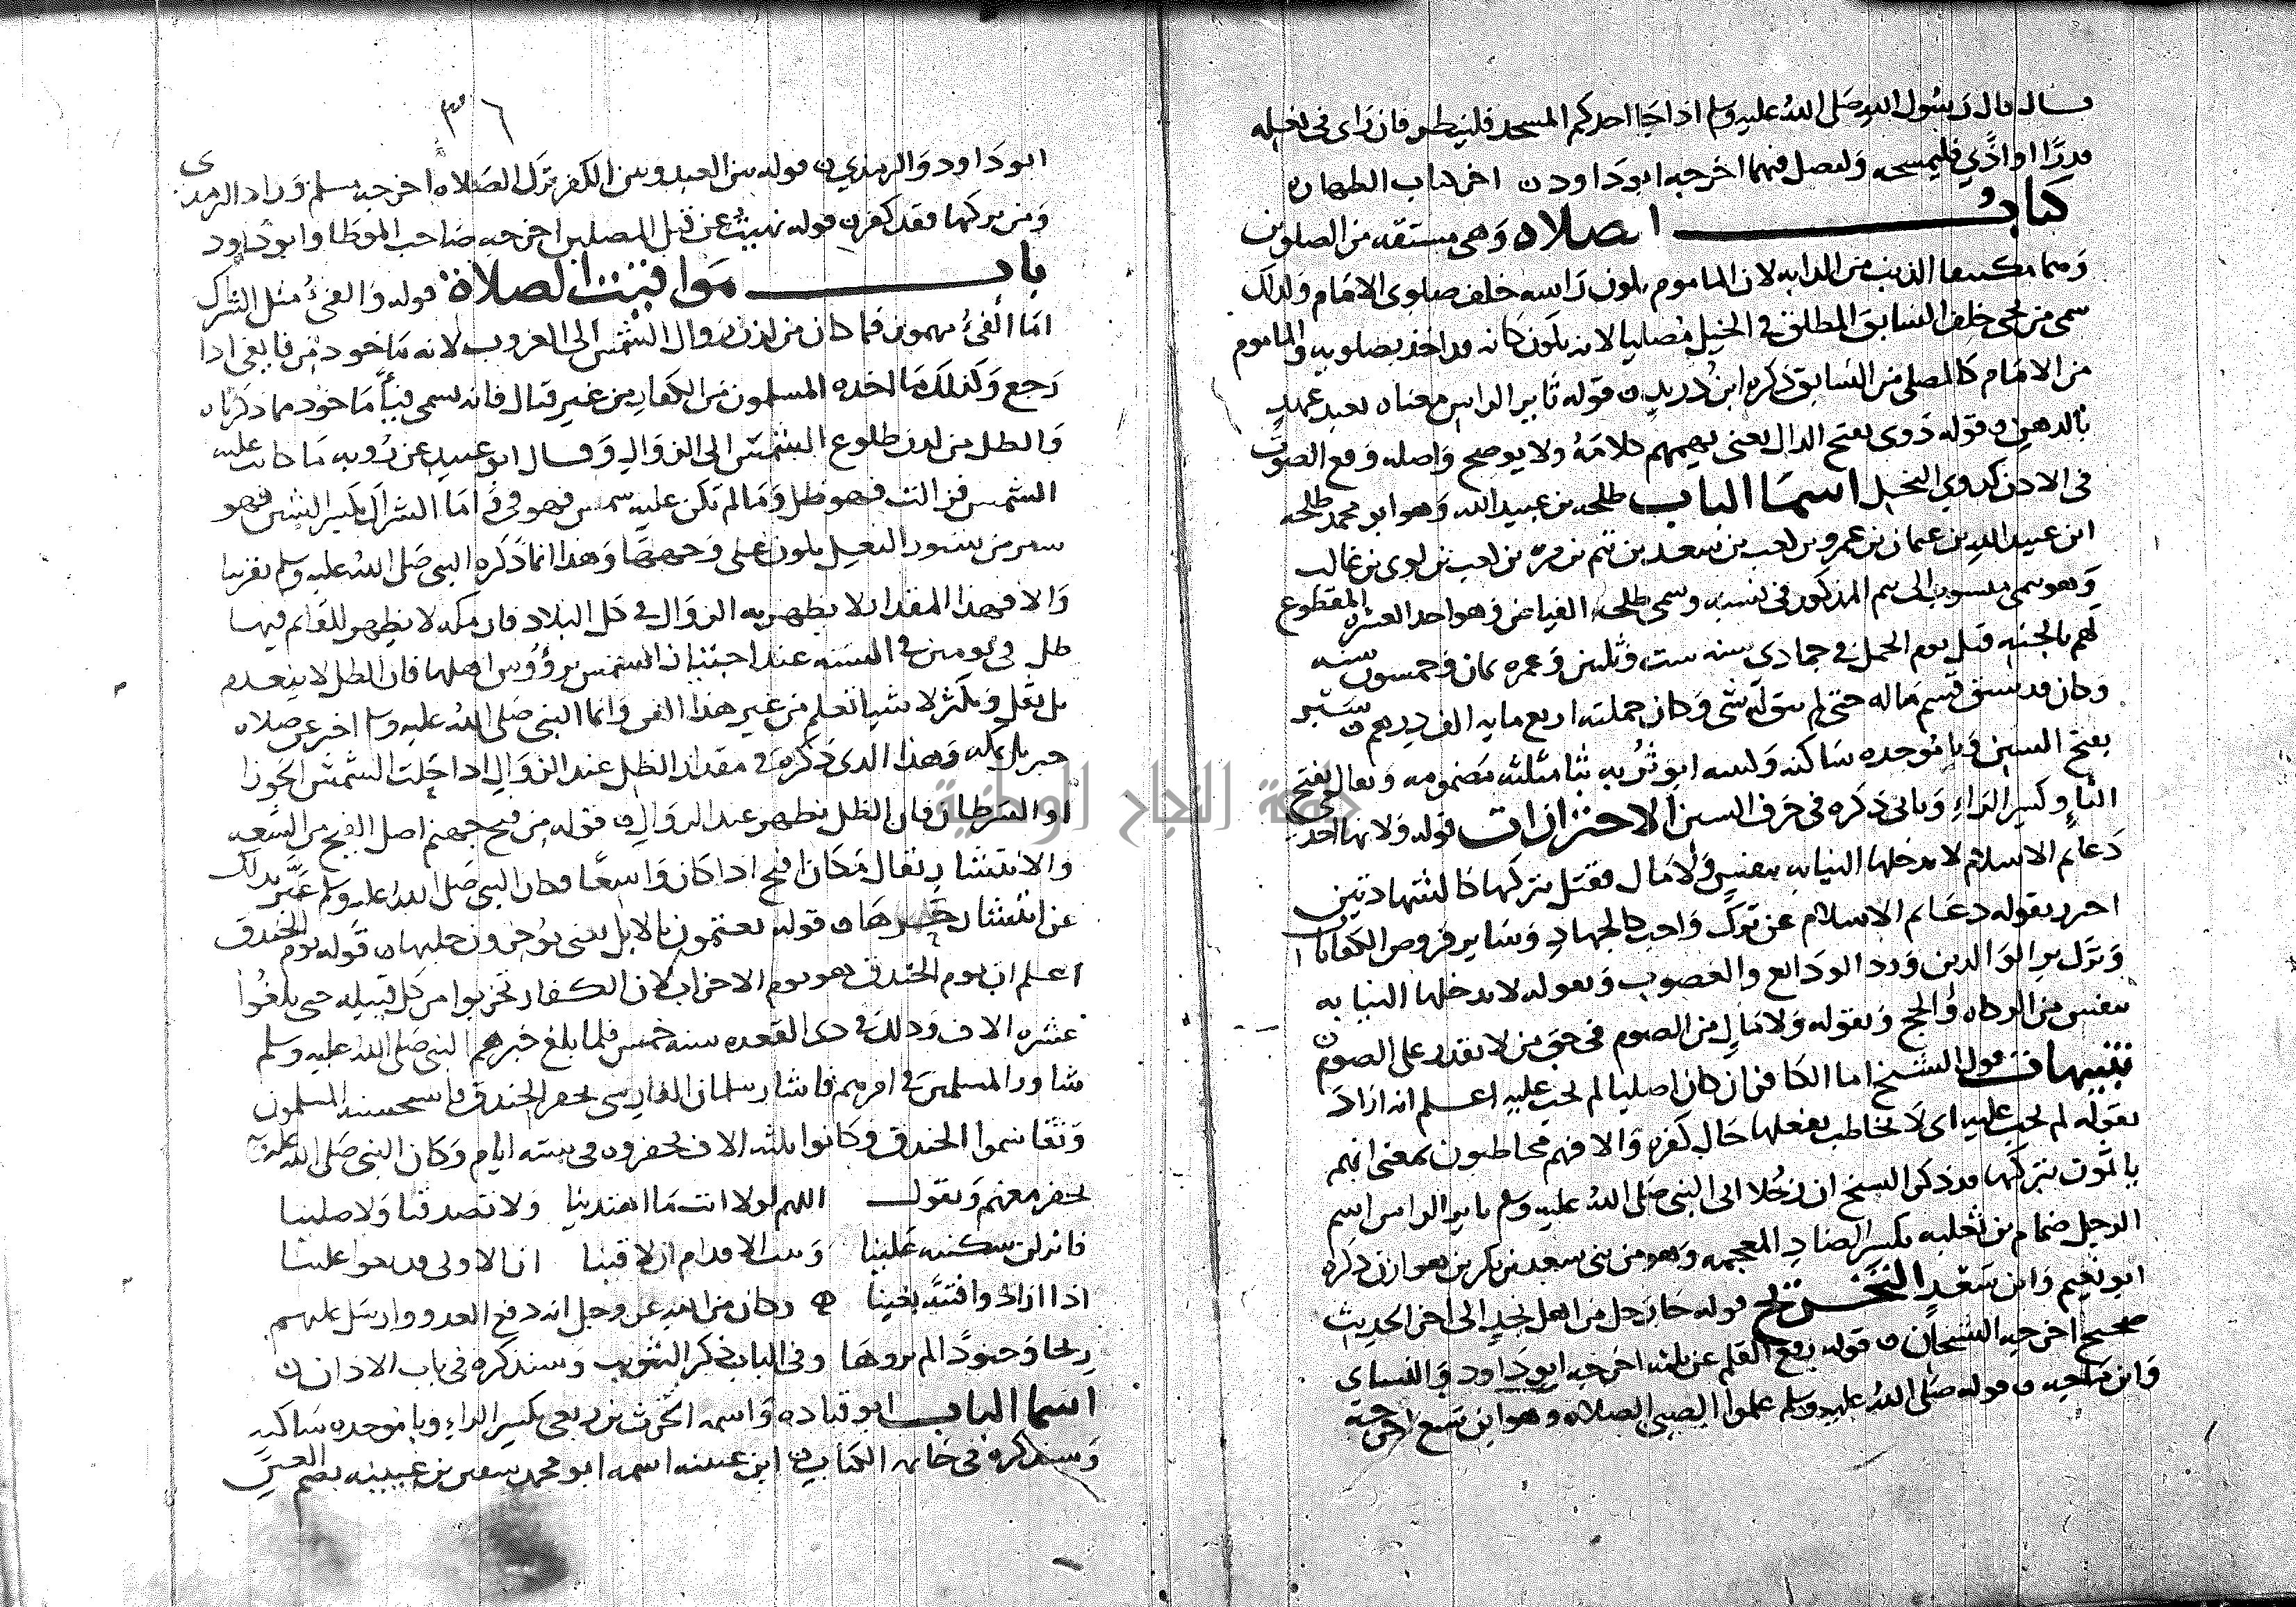 قال قال رسول الله صلى الله عليه وسلم اذا جا احدكم المسجد فلينظر فان راى في نعله
قذرا او اذي فليمسحه وليصل فيهما اخرجه ابو داود ن اخر كتاب الطهاره
كتاب الصلاه وهي مشتقه من الصلوين
وهما الذنب من الدابه لان الماموم يكون راسه خلف صلوى الامام ولذلك
سمي من يجي خلف السابق المطلق في الخيل مصليا لانه يكون كانه قد اخذ بصلويه والماموم
من الامام كالمصلي من السابق ذكره ابن دريد ن قوله ثاير الراس معناه بعيد عهد
بالدهن ن قوله دوى بفتح الدال يعني يهمهم كلامه ولا يوضح واصله وقع الصوت
في الاذن كدوي النحل اسما الباب طلحه بن عبيد الله وهو ابو محمد طلحه
ابن عبيد الله بن عثمان بن عمرو بن كعب بن سعد بن تيم بن مره بن كعب بن لوى بن غالب
وهو تيمي منسوب الى تيم المذكور في نسبه وسمي طلحه الفياض وهو احد العشره المقطوع
لهم بالجنه قتل يوم الجمل في جمادى سنه ست وثلثين وعمره ثمان وخمسون سنه
وكان قد سبق قسم ماله حتى لم يبق له شي وكان جملته اربع مايه الف درهم ن سبر
بفتح السين وبا موحده ساكنه وليسه ابو ثريه بثا مثلثه مضمومه ويقال بفتح
الثا وكسر الراء وياتي ذكره في حرف السين الاحترازات قوله ولانها احد
دعايم الاسلام لا يدخلها النيابه بنفس ولا مال فقتل بتركها كالشهادتين
احترز بقوله دعايم الاسلام عن ترك واجب كالجهاد وساير فروض الكفايات
وترك بر الوالدين ورد الودايع والغصوب وبقوله لا يدخلها النيابه
بنفس من الزكاه والحج وبقوله ولا مال من الصوم في حق من لا يقدر على الصوم ن
تنبيهات قول الشيخ اما الكافر ان كان اصليا لم تجب عليه اعلم انه اراد
بقوله لم تجب عليه اى لا يخاطب بفعلها حال كفره والا فهم مخاطبون بمعنى انهم
ياثمون بتركها قد ذكر الشيخ ان رجلا اتى النبي صلى الله عليه وسلم ثاير الراس اسم
الرجل ضمام بن ثعلبه بكسر الضاد المعجمه وهو من بني سعد بن بكر بن هوازن ذكره
ابو نعيم وابن سعد التخريج قوله جا رجل من اهل نجد الى اخر الحديث
صحيح اخرجه الشيخان ن قوله رفع القلم عن ثلثه اخرجه ابو داود والنساى
وابن ماجه ن قوله صلى الله عليه وسلم علموا الصبي الصلاه وهو ابن سبع اخرجه
٣٦
ابو داود والترمذي ن قوله بين العبد وبين الكفر ترك الصلاه اخرجه مسلم وزاد الترمذى
ومن تركها فقد كفر ن قوله نهيت عن قتل المصلين اخرجه صاحب الموطا وابو داود
باب مواقيت الصلاة قوله والفئ مثل الشراك
اما الفئ مهموز فما كان من لدن زوال الشمس الى الغروب لانه ماخوذ من فا يفى اذا
رجع وكذلك ما اخذه المسلمون من الكفار من غير قتال فانه يسمى فيا ماخوذ مما ذكرناه
والظل من لدن طلوع الشمس الى الزوال وقال ابو عبيد عن رؤبه ما كانت عليه
الشمس فزالت فهو ظل وما لم تكن عليه شمس فهو في اما الشراك بكسر الشين فهو
سير من سيور النعل يكون على وجهها وهذا انما ذكره النبي صلى الله عليه وسلم تقريبا
والا فهذا المقدار لا يظهر به الزوال في كل البلاد فان مكه لا يظهر للقايم فيها
ظل في يومين في السنه عند اجتياز الشمس برؤوس اهلها فان الظل لا ينعدم
بل يقل ويكثر لاشيا تعلم من غير هذا الفن وانما النبي صلى الله عليه وسلم اخبر عن صلاه
جبريل بمكه وهذا الذى ذكره في مقدار الظل عند الزوال اذا حلت الشمس الجوزا
او السرطان فان الظل يظهر عند الزوال ن قوله من فيح جهنم اصل الفيح من السعه
والانتشار يقال مكان افيح اذا كان واسعا وكان النبي صلى الله عليه وسلم عبر بذلك
عن انتشار حرها ن قوله يعتمون بالابل يعني يوخرون حلبها ن قوله يوم الخندق
اعلم ان يوم الخندق هو يوم الاحزاب لان الكفار تحزبوا من كل قبيله حتى بلغوا
عشره الاف وذلك في ذى القعده سنه خمس فلما بلغ خبرهم النبي صلى الله عليه وسلم
شاور المسلمين في امرهم فاشار سلمان الفارسي بحفر الخندق فاستحسنه المسلمون
وتقاسموا الخندق وكانوا ثلثه الاف يحفروه في سته ايام وكان النبي صلى الله عليه
يحفر معهم ويقول اللهم لولا انت ما اهتدينا ولا تصدقنا ولا صلينا
فانزلن سكينه علينا وثبت الاقدام ان لاقينا ان الاولى قد بغوا علينا
اذا ارادوا فتنة ابينا وكان من الله عز وجل انه دفع العدو وارسل عليهم
ريحا وجنودا لم يروها وفي الباب ذكر التثويب وسنذكره في باب الاذان ن
اسما الباب ابو قتاده واسمه الحرث بن ربعي بكسر الراء وبا موحده ساكنه
وسنذكره في خاتمه الكتاب ن ابن عيينه اسمه ابو محمد سفين بن عيينه بضم العين
جامعة النجاح الوطنية